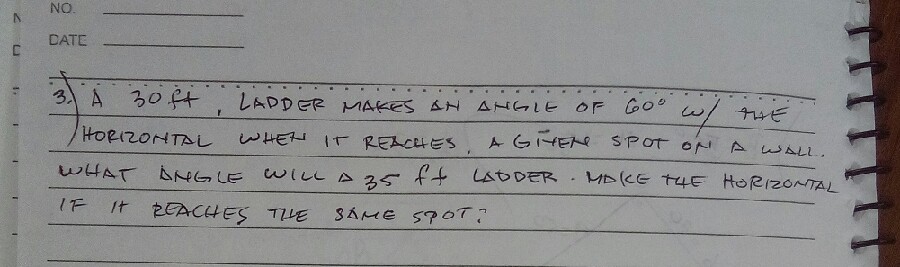 NO.
DATE
3.) A 30 ft, LADDER MAKES AN ANGLE OF 60° W/ THE
HORIZONTAL WHEN IT REACHES, A GIVEN SPOT ON A WALL.
WHAT ANGLE WILL A 35 ft LADDER. MAKE THE HORIZONTAL
IF IT REACHES THE SAME SPOT?